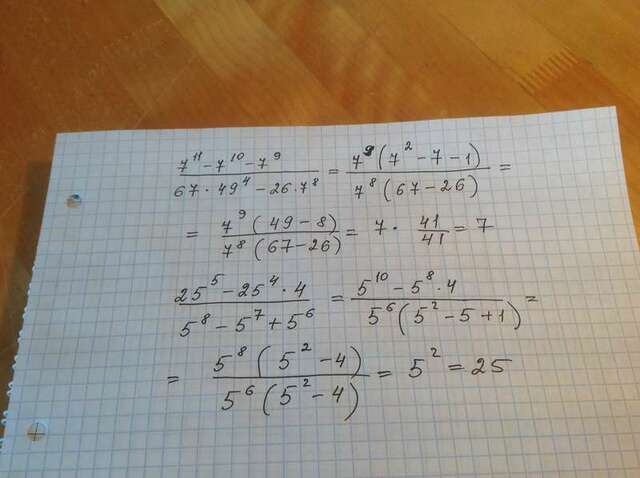 (7¹¹ - 7¹⁰ - 7⁹) / (67 · 49⁴ - 26 · 7⁸) = 7⁹(7² - 7 - 1) / 7⁸(67 - 26) =
= 7⁹(49 - 8) / 7⁸(67 - 26) = 7 · 41/41 = 7
(25⁵ - 25⁴ · 4) / (5⁸ - 5⁷ + 5⁶) = (5¹⁰ - 5⁸ · 4) / 5⁶(5² - 5 + 1) =
= 5⁸(5² - 4) / 5⁶(5² - 4) = 5² = 25